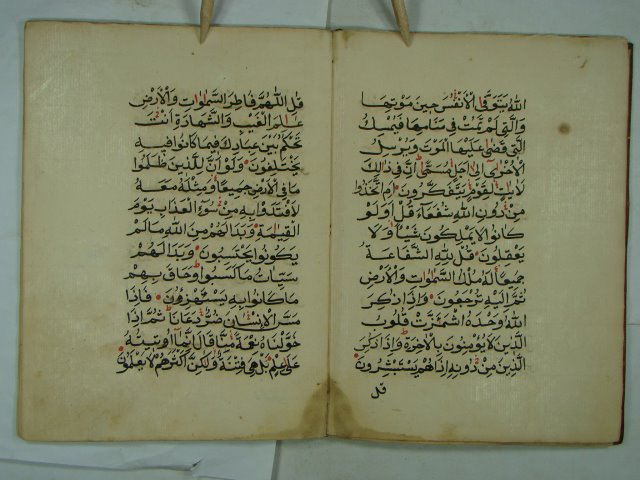 الله يتوفى الأنفس حين موتها
والتي لم تمت في منامها فيمسك
التي قضى عليها الموت ويرسل
الأخرى إلى أجل مسمى إن في ذلك
لآيات لقوم يتفكرون أم اتخذوا
من دون الله شفعاء قل أو لو
كانوا لا يملكون شيئا ولا
يعقلون قل لله الشفاعة
جميعا له ملك السموات والأرض
ثم إليه ترجعون وإذا ذكر
الله وحده اشمأزت قلوب
الذين لا يؤمنون بالآخرة وإذا ذكر
الذين من دونه إذا هم يستبشرون
قل
قل اللهم فاطر السموات والأرض
عالم الغيب والشهادة أنت
تحكم بين عبادك فيما كانوا فيه
يختلفون ولو أن للذين ظلموا
ما في الأرض جميعا ومثله معه
لافتدوا به من سوء العذاب يوم
القيامة وبدا لهم من الله ما لم
يكونوا يحتسبون وبدا لهم
سيئات ما كسبوا وحاق بهم
ما كانوا به يستهزؤن فإذا
مس الإنسان ضر دعانا ثم إذا
خولناه نعمة منا قال إنما أوتيته
على علم بل هي فتنة ولكن أكثرهم لا يعلمون